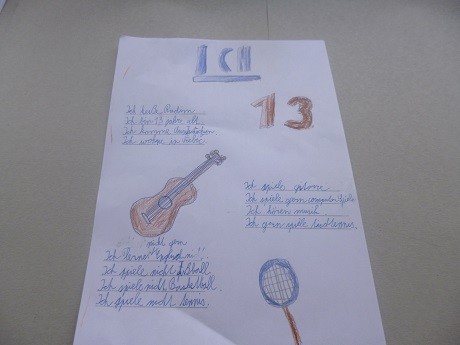 ICH
13
Ich heiße Radim
Ich bin 13 jahre alt.
Ich komme
Ich wohne in
Ich spiele gitarre
Ich spiele gern computerspiele
Ich hören musik
Ich gern spiele tischtennis.
nicht gern
Ich lerne Englisch
Ich spiele nicht fußball
Ich spiele nicht Basketball.
Ich spiele nicht tennis.